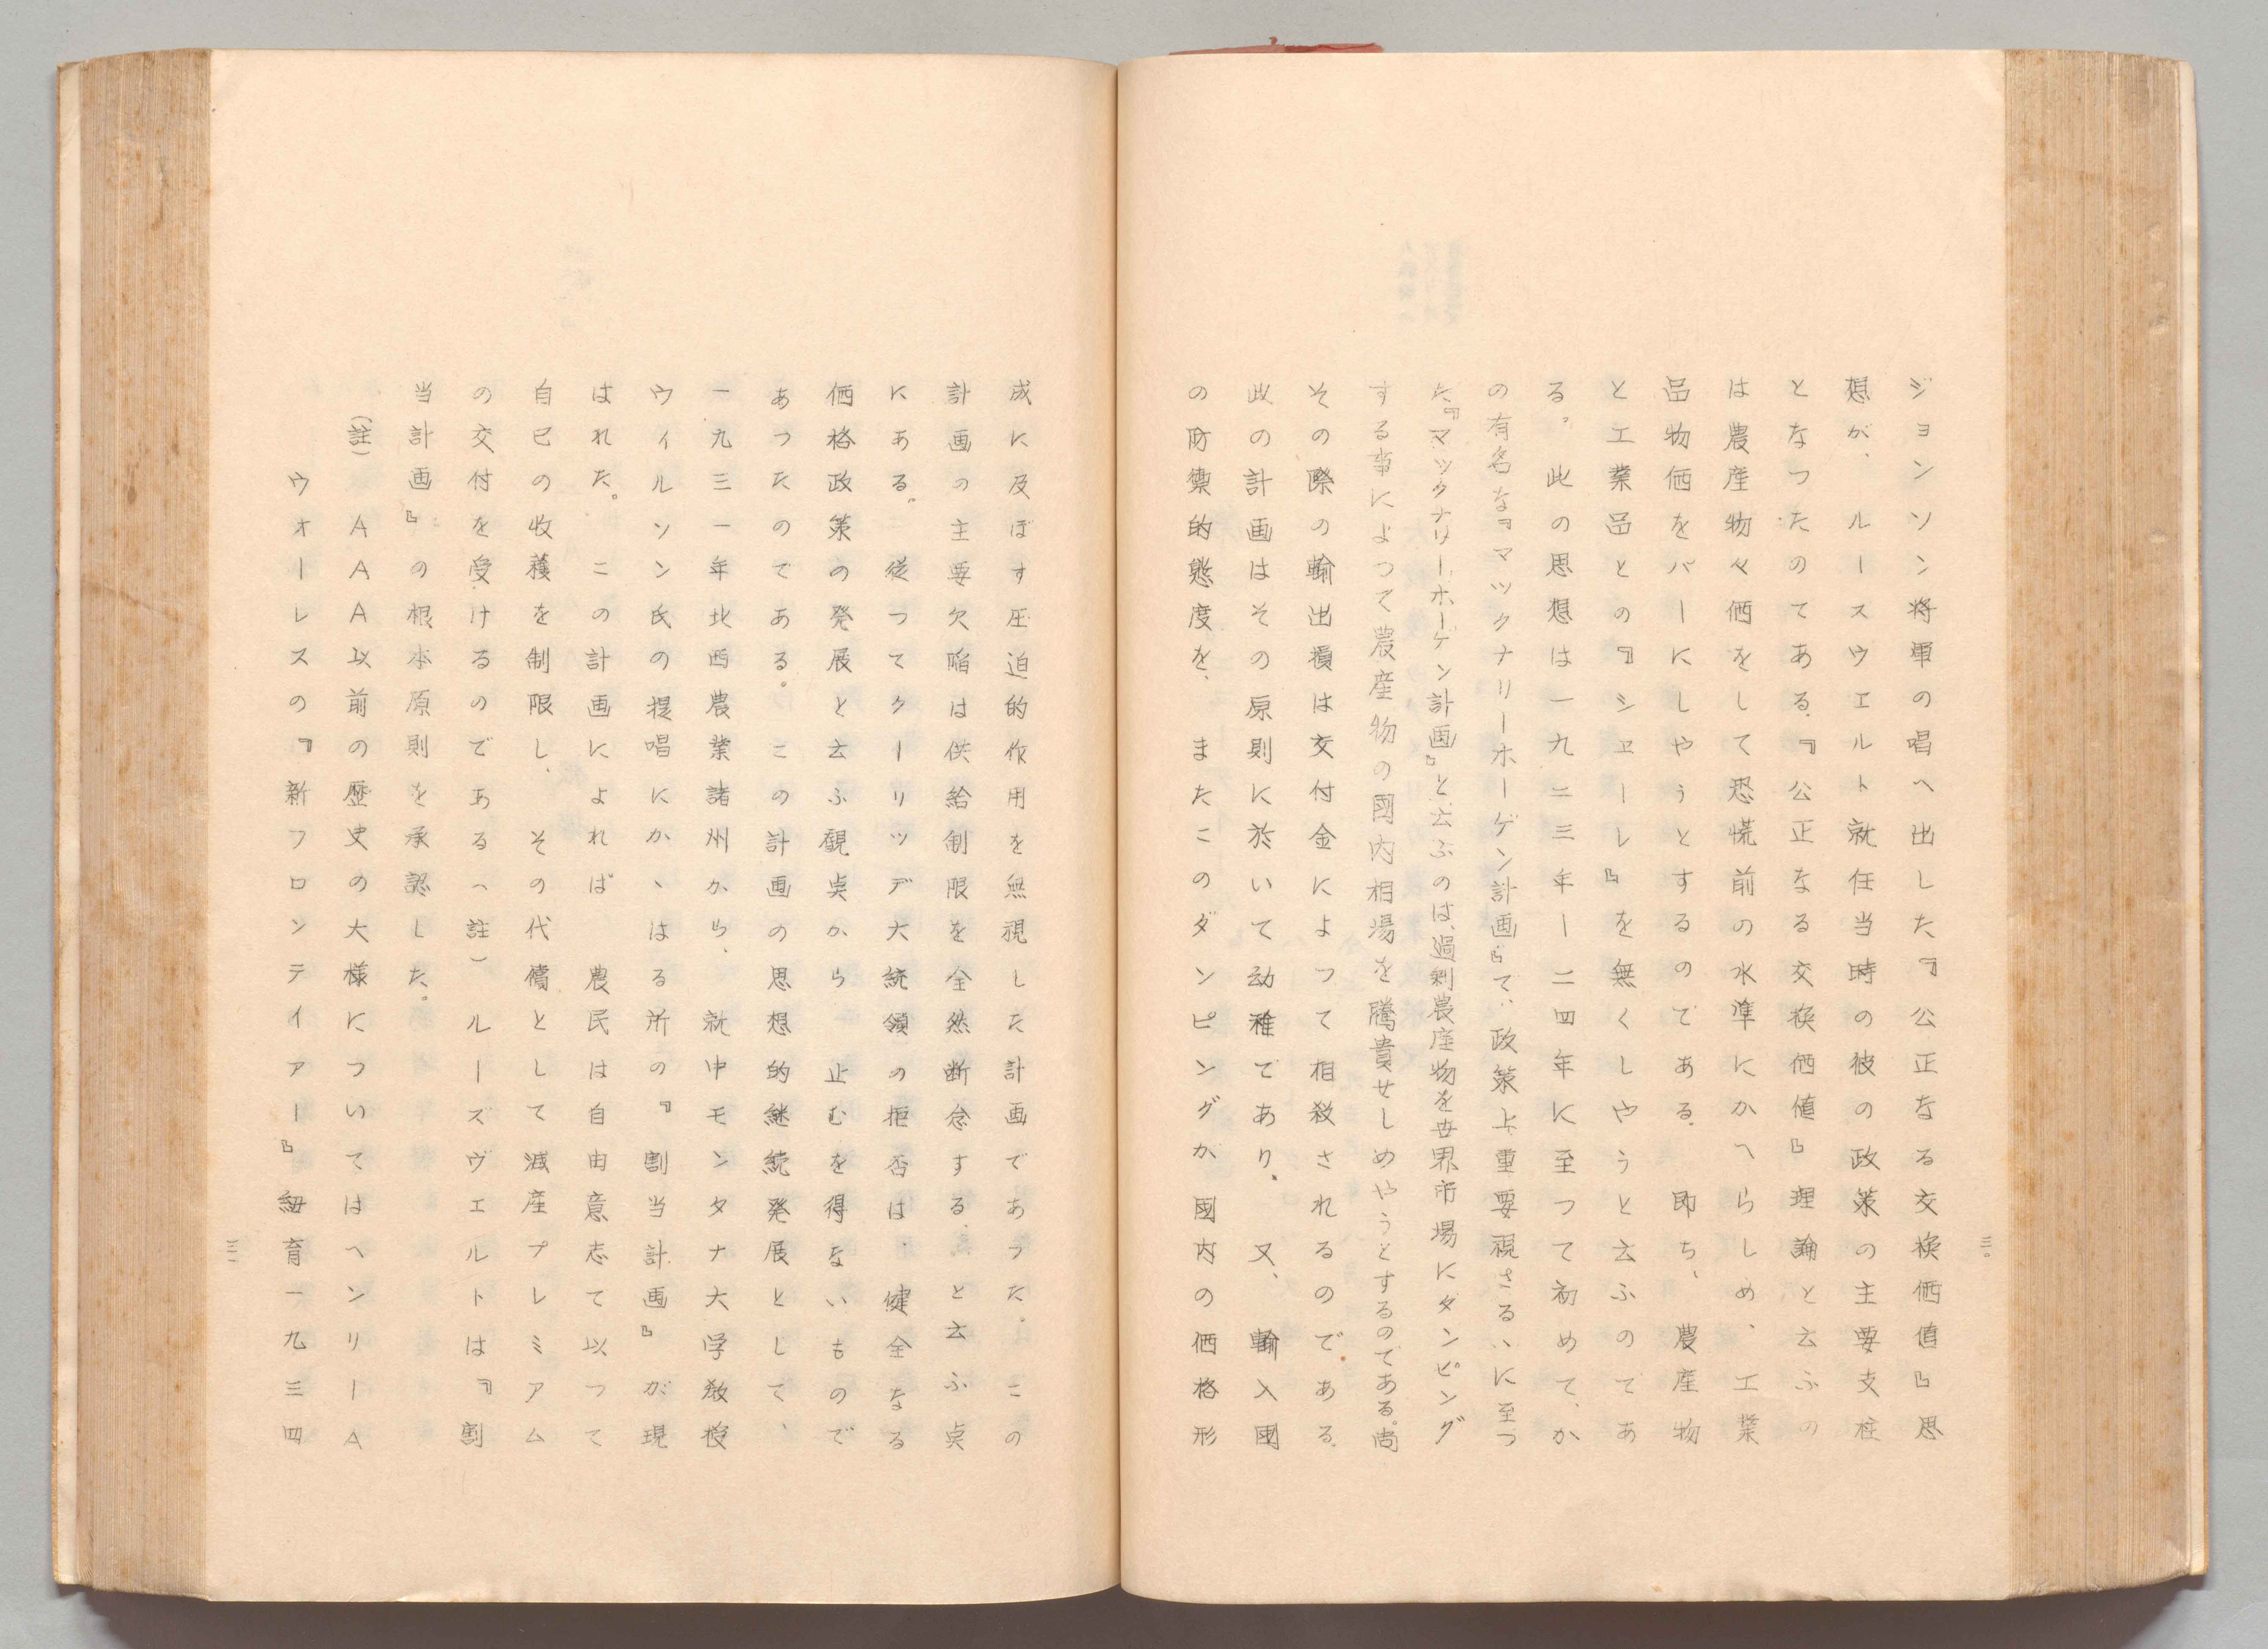 三〇
ジョンソン将軍の唱へ出した『公正なる交換価値』思
想が、ルースウエルト就任当時の彼の政策の主要支柱
となつたのてある。『公正なる交換価値』理論と云ふの
は農産物々価をして恐慌前の水準にかへらしめ、工業
品物価をバーにしやうとするのてある。即ち、農産物
と工業品との『シヱーレ』を無くしやうと云ふのてあ
る。此の思想は一九二三年ー二四年に至つて初めて、か
の有名な『マックナリーホーゲン計画』で、政策上重要視さるゝに至つ
た。『マックナリーホーゲン計画』と云ふのは、過剰農産物を世界市場にダンピング
する事によつて農産物の國内相場を騰貴せしめやうとするのである。尚
その際の輸出損は交付金によつて相殺されるのである。
此の計画はその原則に於いて幼稚であり、又、輸入國
の防禦的態度を、またこのダンピングが國内の価格形
成に及ぼす圧迫的作用を無視した計画であつた。この
計画の主要欠陥は供給制限を全然断念する、と云ふ点
にある。従つてクーリッヂ大統領の拒否は、健全なる
価格政策の発展と云ふ観点から止むを得ないもので
あつたのである。この計画の思想的継続発展として、
一九三一年北西農業諸州から、就中モンタナ大学教授
ウィルソン氏の提唱にかゝはる所の『割当計画』が現
はれた。この計画によれば農民は自由意志て以つて
自己の收穫を制限し、その代償として減産プレミアム
の交付を受けるのである（註）ルーズヴェルトは『割
当計画』の根本原則を承認した。
（註）ＡＡＡ以前の歴史の大様についてはヘンリーＡ
ウォーレスの『新フロンテイアー』紐育一九三四
三一